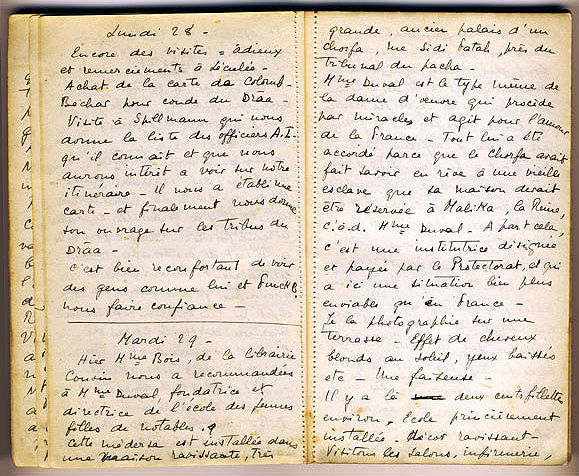 Lundi 28 -
Encore des visites = adieux
et remerciements à
Achat de la carte da Colomb-
Béchar pour coude du Drâa -
Visite à Spillmann qui nous
donne la liste des officiers A.I-
qu'il connait et que nous
aurons intérêt à voir sur notre
itinéraire - Il nous a établi une
carte - et finalement nous donne
son ouvrage sur les tribus du
Drâa -
C'est bien reconfortant de voir
des gens comme lui et
nous faire confiance -
Mardi 29 -
Hier Mme Bois, de la librairie
Cousin nous a recommandées
à Mme Duval, fondatrice et
directrice de l'école des jeunes
filles de notables.
Cette médersa est installée dans
une maison ravissante, très
grande, ancien palais d'un
chorfa, rue Sidi Fatah, près du
tribunal du pacha -
Mme Duval est le type même de
la dame d'œuvre qui procède
par miracles et agit pour l'amour
de la France - Tout lui a été
accordé parce que le Chorfa avait
fait savoir en rêve à une vieille
esclave que sa maison devait
être réservée à Malika, la Reine,
c.à.d. Mme Duval - A part cela,
c'est une institutrice désignée
et payée par le Protectorat, et qui
a ici une situation bien plus
enviable qu'en France -
Je la photographie sur une
terrasse - Effet de cheveux
blonds au soleil, yeux baissés
etc - Une faiseuse
Il y a là deux cents fillettes
environ, Ecole princièrement
installée - Décor ravissant -
Visitons les salons, infirmerie,